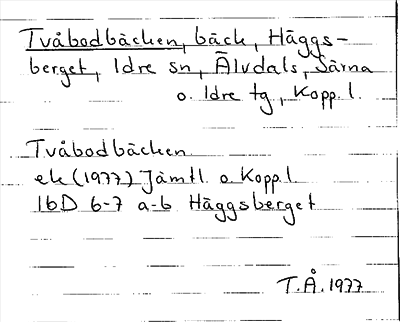 Tvåbodbäcken, bäck, Häggs-
berget, Idre sn, Älvdals, Särna
o. Idre tg, Kopp. l.
Tvåbodbäcken
ek (1977) Jämtl. o Kopp. l
16D 6-7 a-b Häggsberget
T.Å. 1977